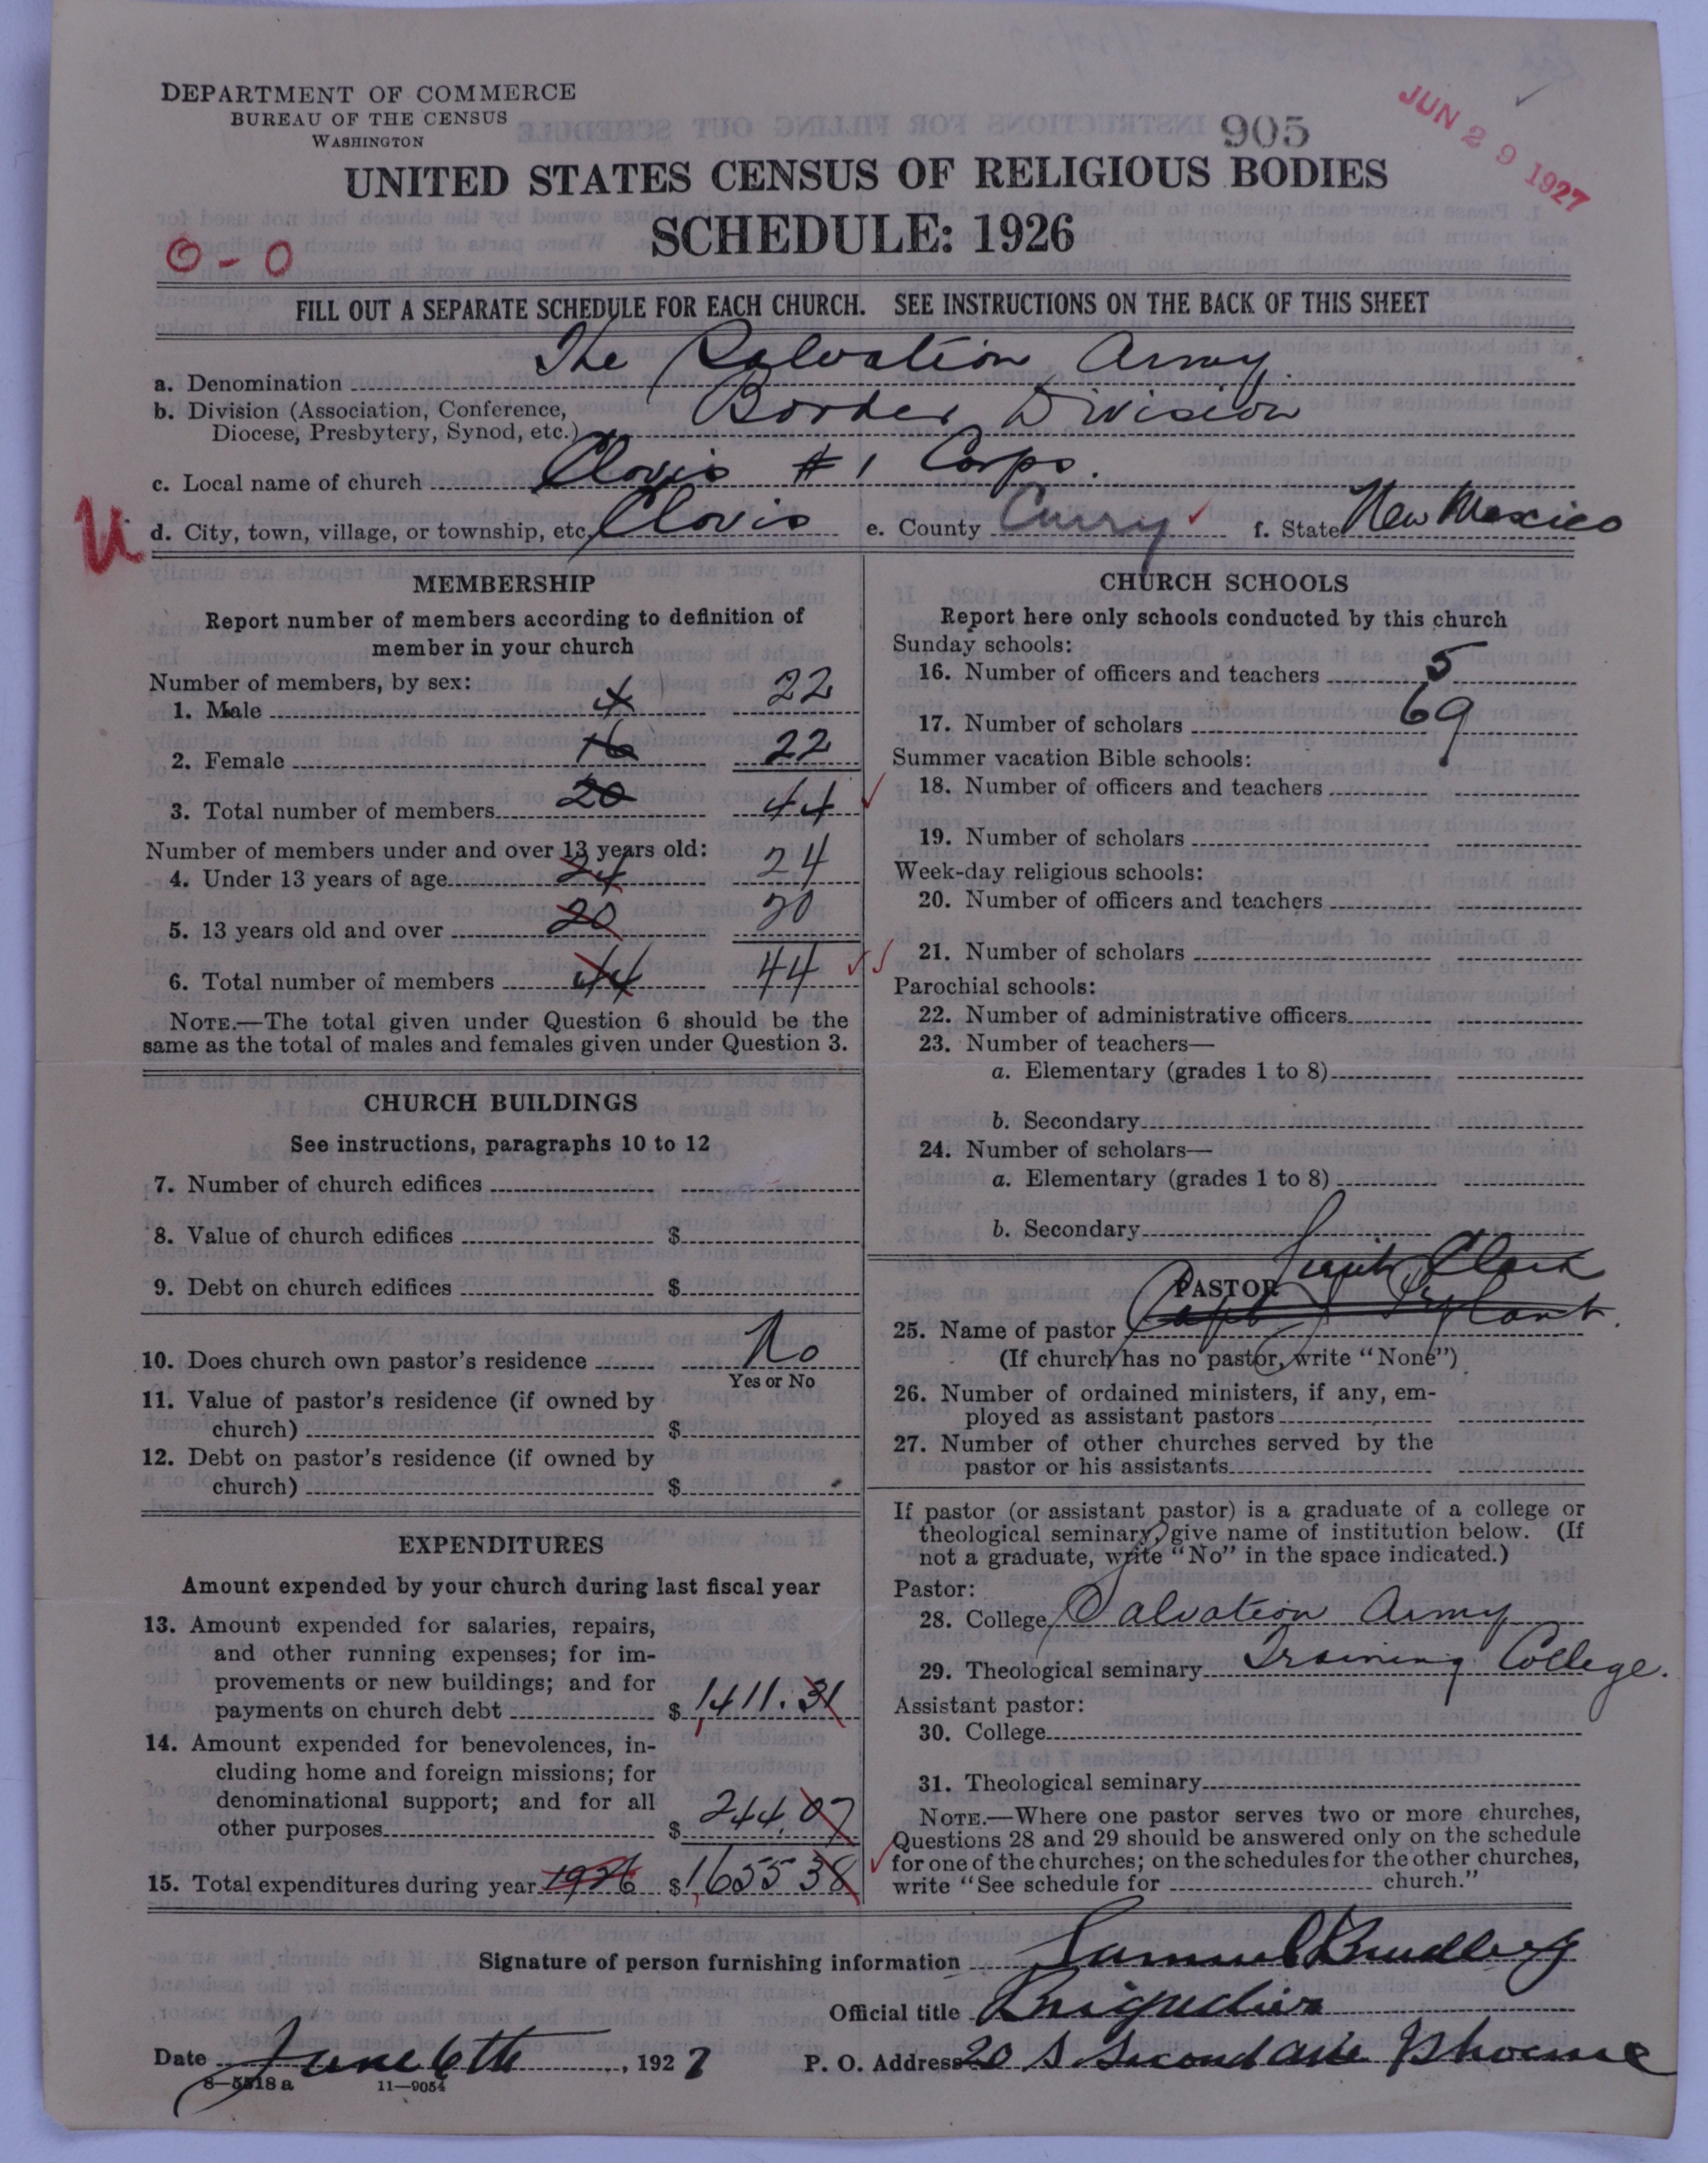 DEPARTMENT OF COMMERCE
BUREAU OF THE CENSUS
WASHINGTON
905
JUN 29 1927
UNITED STATES CENSUS OF RELIGIOUS BODIES
SCHEDULE: 1926
O - O
FILL OUT A SEPARATE SCHEDULE FOR EACH CHURCH. SEE INSTRUCTIONS ON THE BACK OF THIS SHEET
a. Denomination The Salvation Army.
b. Division (Association, Conference, Border Division
Diocese, Presbytery, Synod, etc.)
c. Local name of church Clovis #1 Corps.
U
d. City, town, village, or township, etc. Clovis e. County Curry f. State New Mexico
MEMBERSHIP
Report number of members according to definition of
member in your church
Number of members, by sex:
1. Male 4 22
2. Female 16 22
3. Total number of members 20 44
Number of members under and over 13 years old:
4. Under 13 years of age 24 24
5. 13 years old and over 20 20
6. Total number of members 44 44
NOTE.—The total given under Question 6 should be the
same as the total of males and females given under Question 3.
CHURCH BUILDINGS
See instructions, paragraphs 10 to 12
7. Number of church edifices
8. Value of church edifices $
9. Debt on church edifices $
10. Does church own pastor's residence No
Yes or No
11. Value of pastor's residence (if owned by
church) $
12. Debt on pastor's residence (if owned by
church) $
EXPENDITURES
Amount expended by your church during last fiscal year
13. Amount expended for salaries, repairs,
and other running expenses; for im-
provements or new buildings; and for
payments on church debt $ 1,411.31
14. Amount expended for benevolences, in-
cluding home and foreign missions; for
denominational support; and for all
other purposes $ 244.07
15. Total expenditures during year 1926 $ 1,655 38
CHURCH SCHOOLS
Report here only schools conducted by this church
Sunday schools:
16. Number of officers and teachers 5
17. Number of scholars 69
Summer vacation Bible schools:
18. Number of officers and teachers
19. Number of scholars
Week-day religious schools:
20. Number of officers and teachers
21. Number of scholars
Parochial schools:
22. Number of administrative officers
23. Number of teachers—
a. Elementary (grades 1 to 8)
b. Secondary
24. Number of scholars—
a. Elementary (grades 1 to 8)
b. Secondary
PASTOR Clark
25. Name of pastor Capt J
(If church has no pastor, write "None")
26. Number of ordained ministers, if any, em-
ployed as assistant pastors
27. Number of other churches served by the
pastor or his assistants
If pastor (or assistant pastor) is a graduate of a college or
theological seminary, give name of institution below. (If
not a graduate, write "No" in the space indicated.)
Pastor:
28. College Salvation Army
29. Theological seminary Training College.
Assistant pastor:
30. College
31. Theological seminary
NOTE.—Where one pastor serves two or more churches,
Questions 28 and 29 should be answered only on the schedule
for one of the churches; on the schedules for the other churches,
write "See schedule for church."
Signature of person furnishing information Samuel
Official title Brigadier
Date June 6th, 1927 P. O. Address 20 S. Second Ave
8—5518 a 11—9054